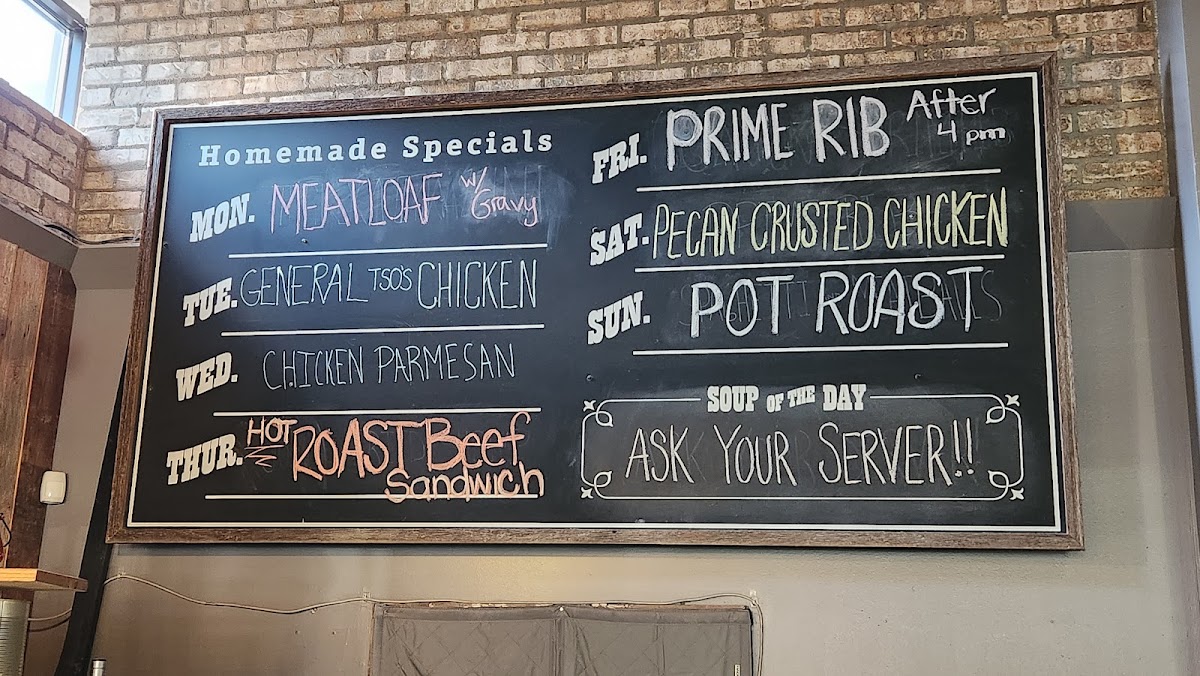 Homemade Specials
MON. MEATLOAF w/ Gravy
TUE. GENERAL TSO'S CHICKEN
WED. CHICKEN PARMESAN
THUR. HOT ROAST Beef
Sandwich
FRI. PRIME RIB After
4 pm
SAT. PECAN CRUSTED CHICKEN
SUN. POT ROAST
SOUP OF THE DAY
ASK YOUR SERVER!!